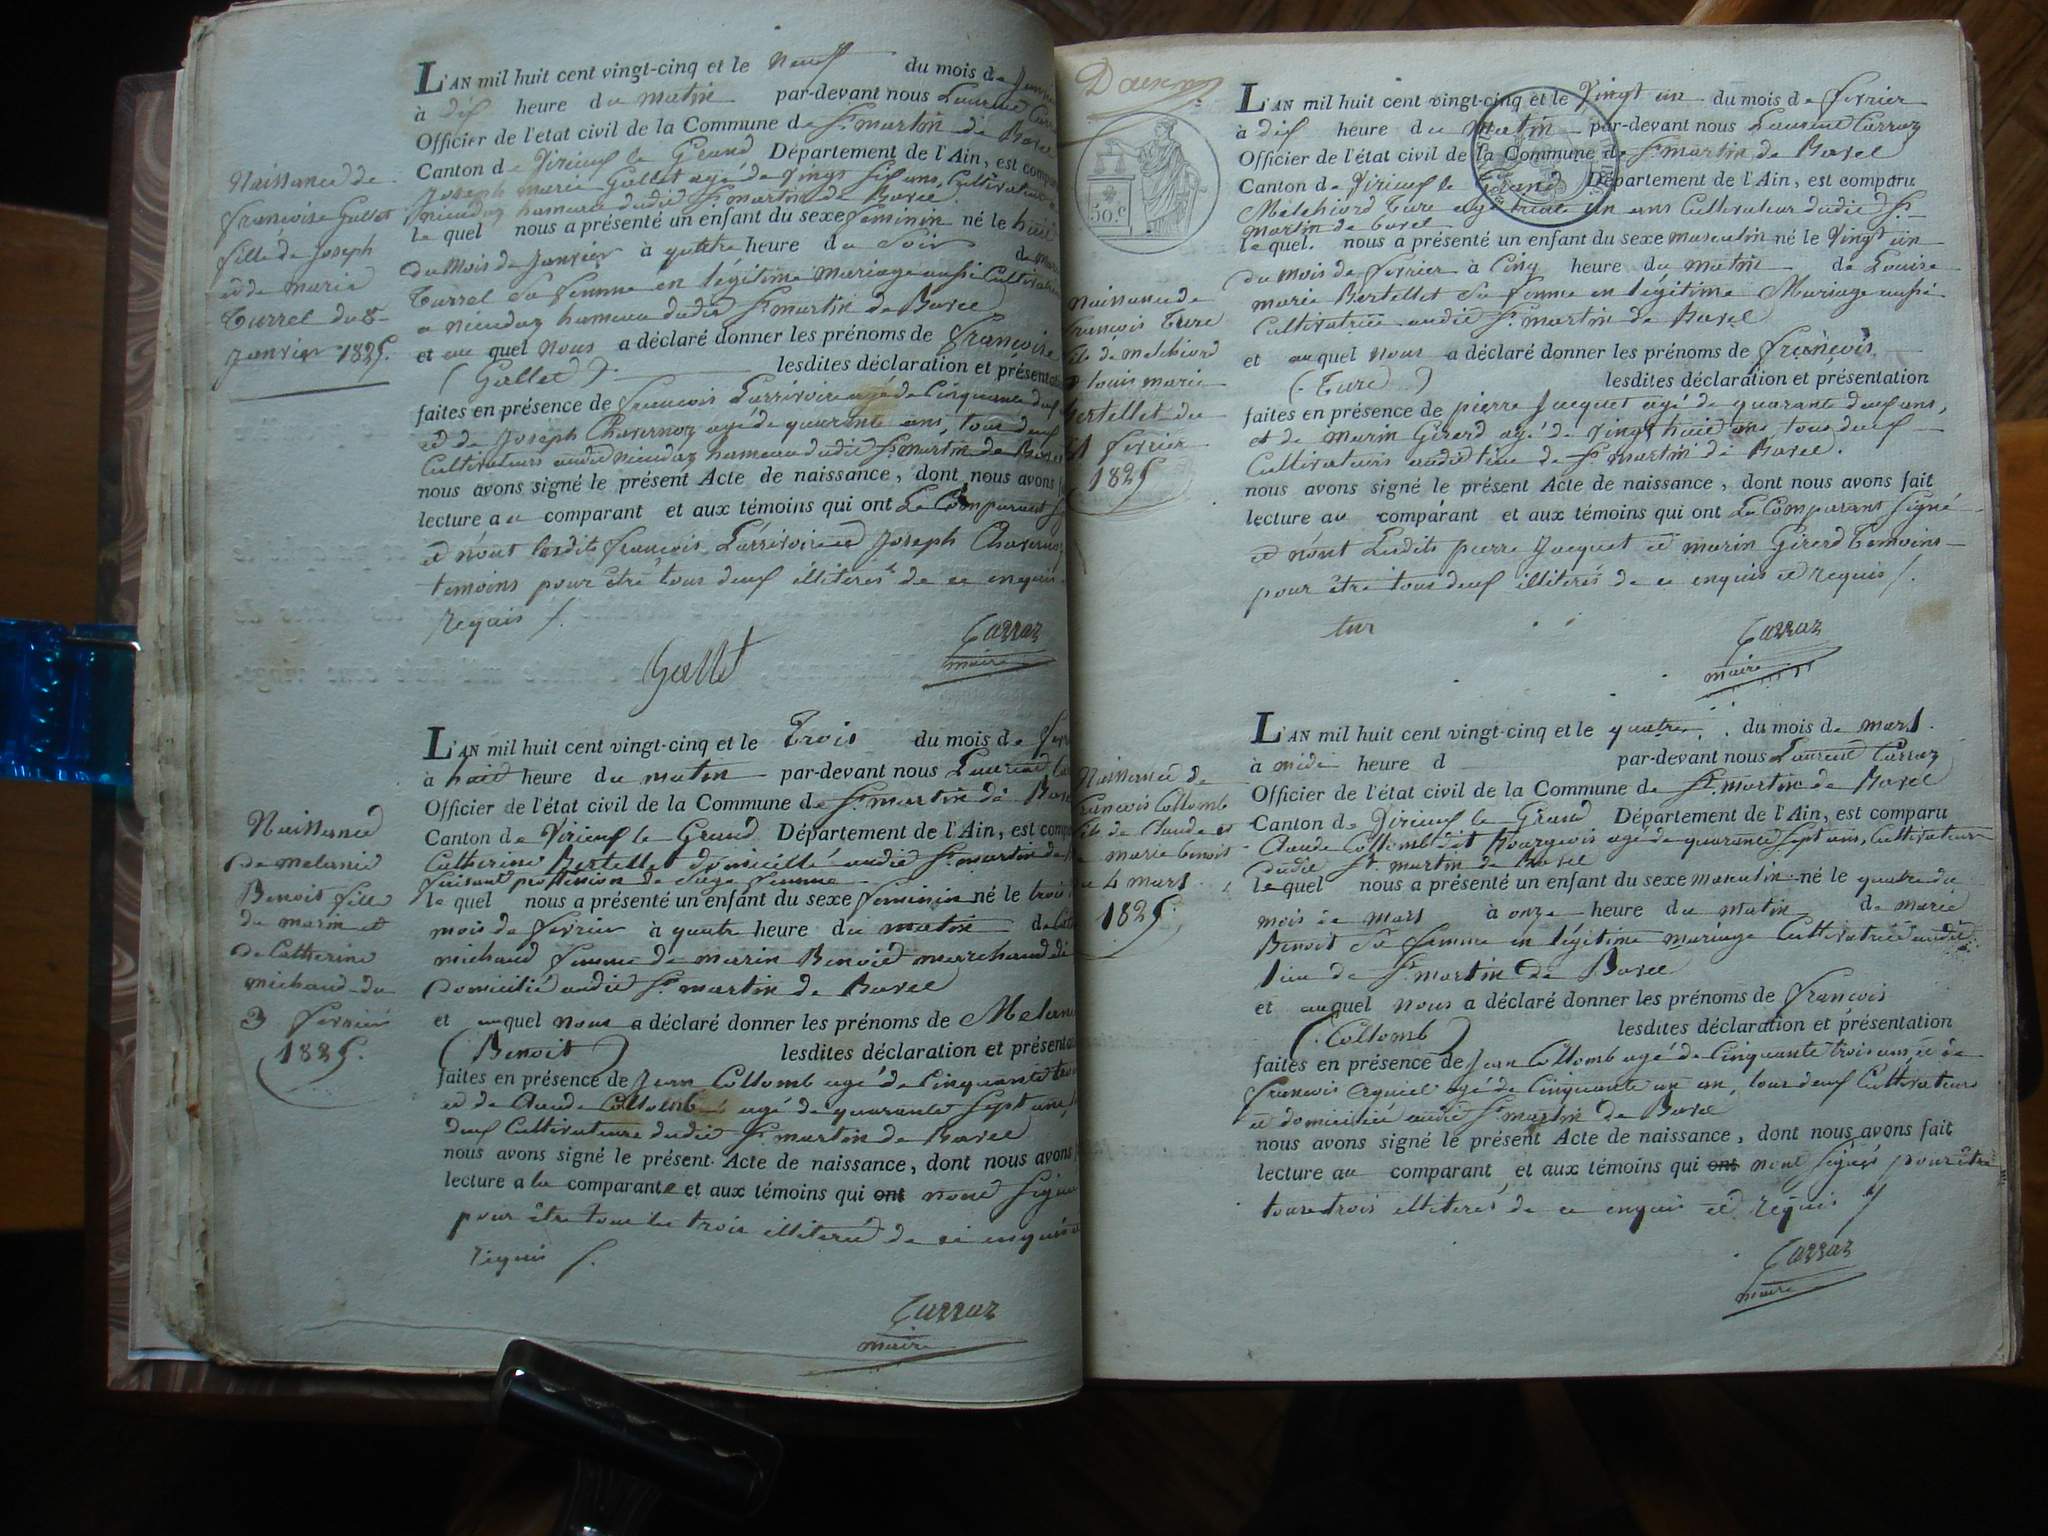 L'AN mil huit cent vingt-cinq et le neuf du mois de
à dix heure du matin par-devant nous Laurent
Officier de l'etat civil de la Commune de St. martin de Bavel
Canton de Virieux le Grand Département de l'Ain, est
Joseph marie Gallet agé de vingt six ans, Cultivateur
hameau dudit St. martin de Bavel
le quel nous a présenté un enfant du sexe feminin né le huit
du Mois de Janvier à quatre heure du Soir de
Turrel Sa femme en légitime Mariage aussi
a hameau dudit St. martin de Bavel
et au quel nous a déclaré donner les prénoms de françoise
(Gallet) lesdites déclaration et
faites en présence de francois Larrivoire agé de Cinquante deux
et de Joseph Chavernoz agé de quarante ans, tous deux
Cultivateurs hameau dudit St. martin de Bavel
nous avons signé le présent Acte de naissance, dont nous avons
lecture au comparant et aux témoins qui ont Le Comparant
et n'ont lesdits francois Larrivoire et Joseph Chavernoz
temoins pour être tous deux illiteres de ce enquis
requis /.
Carraz
maire
Gallet
Naissance de
francoise Gallet
fille de Joseph
et de marie
Turrel du 8
Janvier 1825.
L'AN mil huit cent vingt-cinq et le Trois du mois de
à huit heure du matin par-devant nous Laurent
Officier de l'état civil de la Commune de St. martin de
Canton de Virieux le Grand Département de l'Ain, est
Catherine Bertellet domicillé audit St. martin de
faisant proffession de sage femme
le quel nous a présenté un enfant du sexe feminin né le trois
mois de fevrier à quatre heure du matin de
michaud femme de marin Benoit marchand
Domicilié audit St. martin de Bavel
et auquel nous a déclaré donner les prénoms de
(Benoit) lesdites déclaration et
faites en présence de Jean Collomb agé de Cinquante
et de Claude Collomb agé de quarante Sept ans,
deux Cultivateurs dudit St. martin de Bavel
nous avons signé le présent Acte de naissance, dont nous avons
lecture a la comparante et aux témoins qui ont nont
pour être tous les trois illiteré de ce
requis /.
Carraz
maire
Naissance
de melanie
Benoit fille
de marin et
de Catherine
michaud du
3 fevrier
1825.
50.c
L'AN mil huit cent vingt-cinq et le Vingt un du mois de fevrier
à dix heure du matin par-devant nous Laurent Carraz
Officier de l'état civil de la Commune de St. martin de Bavel
Canton de Virieux le Grand Département de l'Ain, est comparu
Melchiord Ture agé trente un ans Cultivateur dudit St.
martin de bavel
le quel nous a présenté un enfant du sexe masculin né le Vingt un
du mois de fevrier à Cinq heure du matin de Louise
marie Bertellet Sa femme en legitime Mariage aussi
Cultivatrice audit St. martin de Bavel
et auquel nous a déclaré donner les prénoms de francois
(Ture) lesdites déclaration et présentation
faites en présence de pierre Jacquet agé de quarante deux ans,
et de marin Girerd agé de Vingt huit ans tous deux
Cultivateurs audit lieu de St. martin de Bavel.
nous avons signé le présent Acte de naissance, dont nous avons fait
lecture au comparant et aux témoins qui ont Le Comparant signé
et n'ont Lesdits pierre Jacquet et marin Girerd Temoins
pour être tous deux illiterés de ce enquis et requis /.
tur
Carraz
maire
naissance de
francois Ture
fils de melchiord
louis marie
Bertellet du
21 fevrier
1825
L'AN mil huit cent vingt-cinq et le quatre du mois de mars
à midi heure d par-devant nous Laurent Carraz
Officier de l'état civil de la Commune de St. martin de Bavel
Canton de Virieux le Grand Département de l'Ain, est comparu
Claude Collomb dit Bourgeois agé de quarante Sept ans, Cultivateur
dudit St. martin de Bavel
le quel nous a présenté un enfant du sexe masculin né le quatre du
mois de mars à onze heure du matin de marie
Benoit Sa femme en légitime mariage Cultivatrice audit
lieu de St. martin de Bavel
et auquel nous a déclaré donner les prénoms de francois
(Collomb) lesdites déclaration et présentation
faites en présence de Jean Collomb agé de Cinquante trois ans, et de
francois agé de Cinquante un an, tous deux Cultivateurs
et domicilié audit St. martin de Bavel
nous avons signé le présent Acte de naissance, dont nous avons fait
lecture au comparant, et aux témoins qui ont nont signés pour être
tous trois illiterés de ce enquis et requis /
Carraz
maire
Naissance de
francois Collomb
fils de Claude et
marie benoit
4 mars
1825.